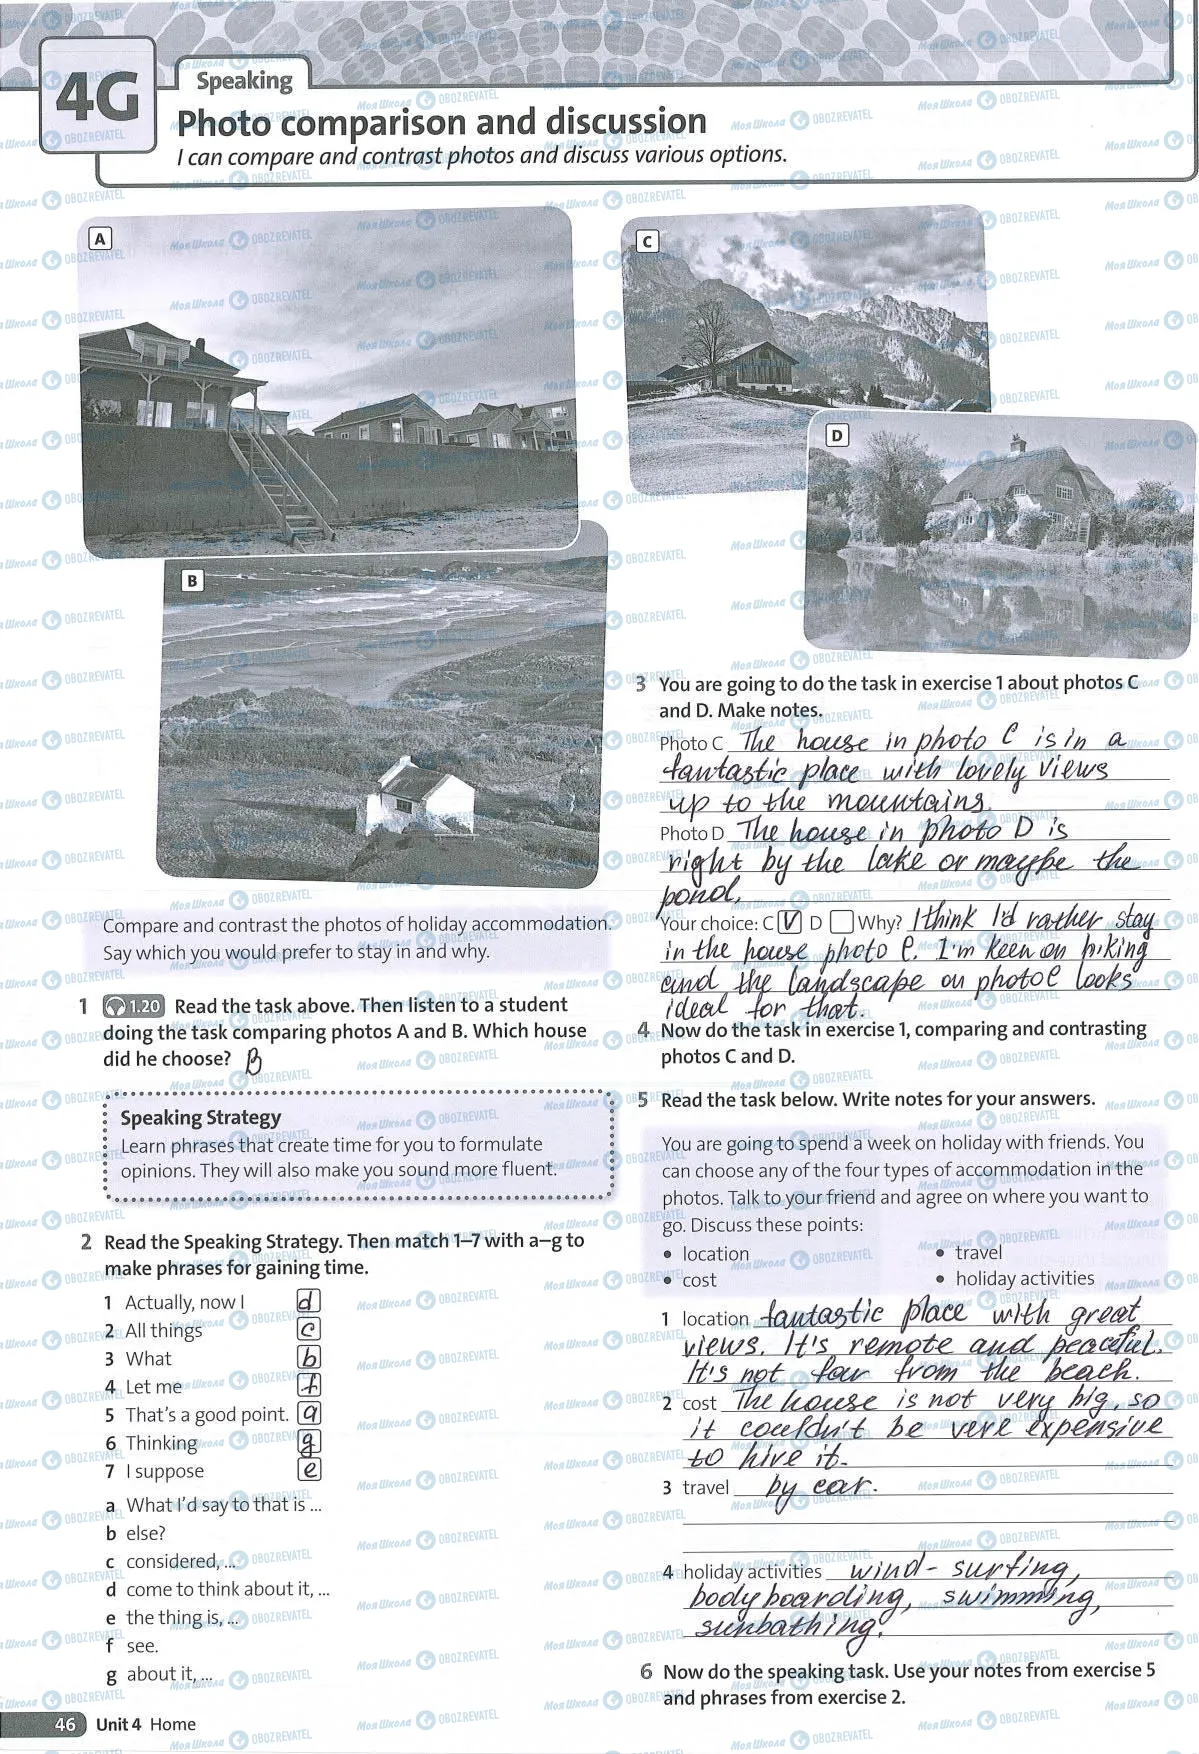 4G
Speaking
Photo comparison and discussion
I can compare and contrast photos and discuss various options.
A
B
Compare and contrast the photos of holiday accommodation.
Say which you would prefer to stay in and why.
1 1.20 Read the task above. Then listen to a student
doing the task comparing photos A and B. Which house
did he choose? B
Speaking Strategy
Learn phrases that create time for you to formulate
opinions. They will also make you sound more fluent.
2 Read the Speaking Strategy. Then match 1–7 with a–g to
make phrases for gaining time.
1 Actually, now I d
2 All things c
3 What b
4 Let me f
5 That's a good point. a
6 Thinking g
7 I suppose e
a What I'd say to that is ...
b else?
c considered, ...
d come to think about it, ...
e the thing is, ...
f see.
g about it, ...
C
D
3 You are going to do the task in exercise 1 about photos C
and D. Make notes.
Photo C The house in photo C is in a
fantastic place with lovely views
up to the mountains.
Photo D The house in photo D is
right by the lake or maybe the
pond,
Your choice: C V D Why? I think I'd rather stay
in the house photo C. I'm keen on hiking
and the landscape on photo C looks
ideal for that.
4 Now do the task in exercise 1, comparing and contrasting
photos C and D.
5 Read the task below. Write notes for your answers.
You are going to spend a week on holiday with friends. You
can choose any of the four types of accommodation in the
photos. Talk to your friend and agree on where you want to
go. Discuss these points:
• location • travel
• cost • holiday activities
1 location fantastic place with great
views. It's remote and peaceful.
It's not far from the beach.
2 cost The house is not very big, so
it couldn't be vere expensive
to hive it.
3 travel by car.
4 holiday activities wind-surfing,
bodyboarding, swimming,
sunbathing.
6 Now do the speaking task. Use your notes from exercise 5
and phrases from exercise 2.
46 Unit 4 Home
Моя Школа OBOZREVATEL